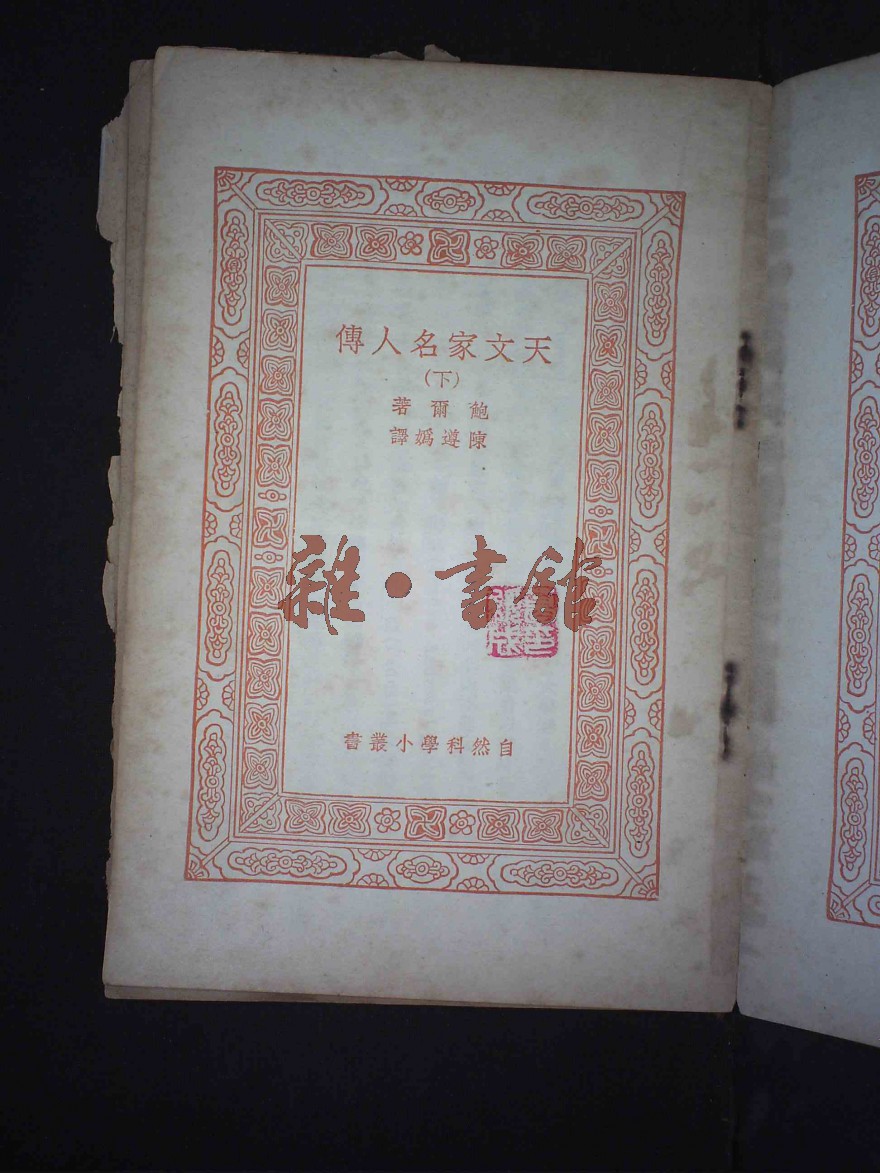 天文家名人傳
(下)
鮑爾著
陳遵嬀譯
雜·書館
自然科學小叢書